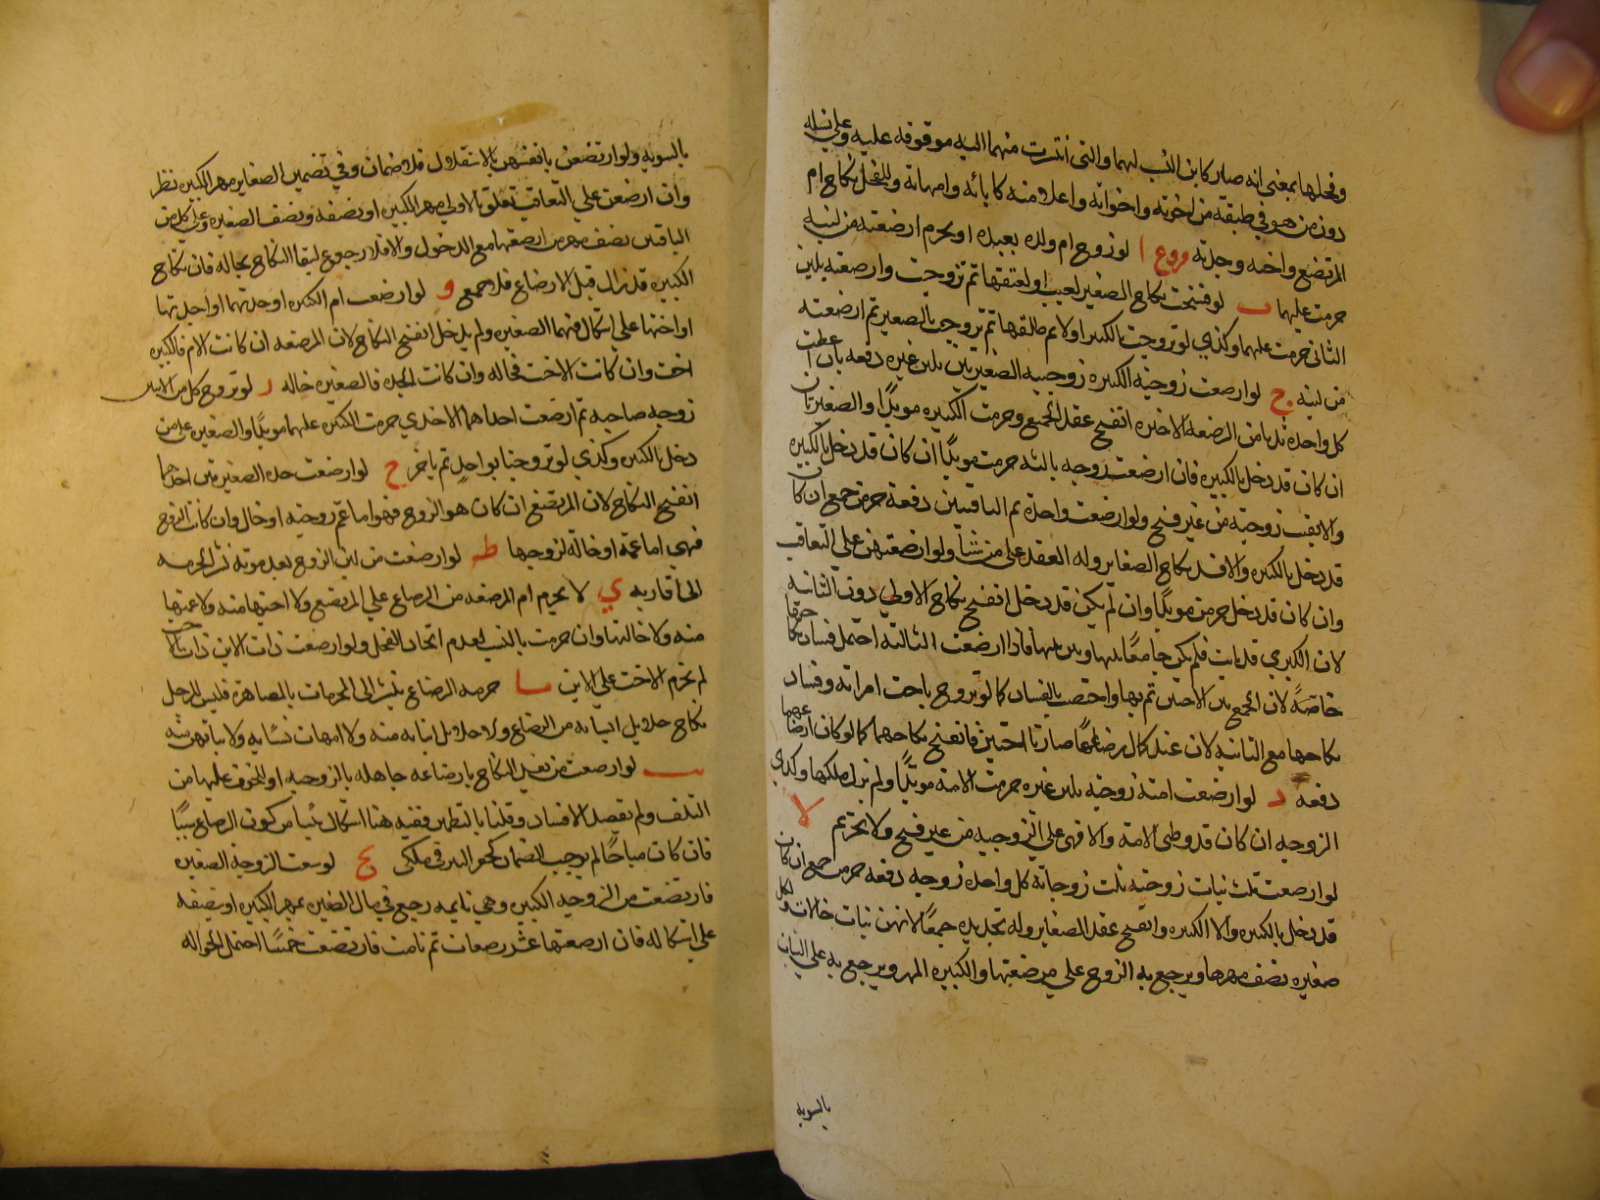 وفحلها بمعنى انه صار كابن النسب لهما والتى انتشرت منهما اليه موقوفه عليه وعلى نسله
دون من هو فى طبقته من اخوته واخواته واعلا منه كابائه وامهاته وللفحل نكاح ام
المرتضع واخته وجدته فروع ا لو زوج ام ولده بعبده ارضعته من لبنه
حرمت عليهما ب لو فسخت نكاح الصغير لعيب او لعتقها ثم تزوجت وارضعته بلبن
الثانى حرمت عليهما وكذى لو تزوجت بالكبير اولا ثم طلقها ثم تزوجت بالصغير ثم ارضعته
من لبنه ج لو ارضعت زوجته الكبيره زوجتيه الصغيرتين بلبن غيره دفعه بان اعطت
كل واحده ثديا من الرضعه الاخيره انفسخ عقد الجميع وحرمت الكبيره موبدا والصغيرتان
ان كان قد دخل بالكبيره فان ارضعت زوجه ثالثه حرمت موبدا ان كان قد دخل بالكبيره
والا بقيت زوجيته من غير فسخ ولو ارضعت واحده ثم الباقيتين دفعة حرمن جمع ان كان
قد دخل بالكبيره والا فسد نكاح الصغاير وله العقد على من شا ولو ارضعتهن على التعاقب
وان كان قد دخل حرمن موبدا وان لم يكن قد دخل انفسخ نكاح الاولى دون الثانيه
لان الكبرى قد بانت فلم يكن جامعا بينها وبين بنتها فاذا ارضعت الثالثه احتمل فساد نكاحها
خاصة لان الجمع بين الاختين تم بها واختصت بالفساد كما لو تزوج باخت امراته وفساد
نكاحها مع الثانيه لان عند كمال رضاعها صارتا اختين فانفسخ نكاحهما كما لو كان ارضاعهما
دفعه د لو ارضعت امته زوجته بلبن غيره حرمت الامه موبدا ولم يزل ملكها وكذى
الزوجه ان كان قد وطى الامه والا فهى على الزوجيه من غير فسخ ولا تحريم ه
لو ارضعت ثلث بنات زوجته ثلث زوجاته كل واحده زوجه دفعه حرمن جمع ان كان
قد دخل بالكبيره والا الكبيره وانفسخ عقد الصغاير وله تجديده جمعا لانهن بنات خالات ولكل
صغيره نصف مهرها ويرجع به الزوج على مرضعتها وللكبيره المهر ويرجع به على البنات
بالسويه
بالسويه ولو ارتضعن بانفسهن بالاستقلال فلا ضمان وفى تضمين الصغاير مهر الكبيره نظر
وان ارضعن على التعاقب تعلق بالاولى مهر الكبيره او نصفه ونصف الصغيره وعلى كل من
الباقين نصف مهر من ارضعتها مع الدخول والا فلا رجوع لبقا النكاح بحاله فان نكاح
الكبيره قد زال قبل الارضاع فلا جمع و لو ارضعت ام الكبيره او جدتهما او احدتها
او اختها على اشكال فيهما الصغيره ولم يدخل انفسخ النكاح لان المرضعه ان كانت الام فالكبيره
اخت وان كانت الاخت فخاله وان كانت الجده فالصغيره خاله ز لو تزوج كل من الاثنين
زوجه صاحبه ثم ارضعت احداهما الاخرى حرمت الكبيره عليهما موبدا والصغيره على من
دخل بالكبيره وكذى لو تزوجتا بواحد ثم باخر ح لو ارضعت جده الصغيرتين احدهما
انفسخ النكاح لان المرتضع ان كان هو الزوج فهو اما عم زوجته او خال وان كانت الزوجه
فهى اما عمة او خالة لزوجها ط لو ارضعت من لبن الزوج بعد موته نشر الحرمه
الى اقاربه ي لا تحرم ام المرضعه من الرضاع على المرتضع ولا اختها منه ولا عمتها
منه ولا خالتها وان حرمت بالنسب لعدم اتحاد الفحل ولو ارضعت ذات الابن ذات
لم تحرم الاخت على الابن يا حرمه الرضاع ينشر الى المحرمات بالمصاهره فليس للرجل
نكاح حلايل ابنائه من الرضاع ولا حلايل ابنائه منه ولا امهات نسائه ولا بناتهن منه
يب لو ارضعت من نفسد النكاح بارضاعه جاهله بالزوجيه او للخوف عليها من
التلف ولم تقصد الافساد وقلنا بالتظمين ففيه هنا اشكال ينشا من كون الرضاع سببا
فان كان مباحا لم يوجب الضمان كحفر البير فى ملكى يج لو سعت الزوجة الصغيره
فارتضعت من الزوجه الكبيره وهى نايمه رجع فى مال الصغيره بمهر الكبيره او بنصفه
على اشكاله فان ارضعتها عشر رضعات ثم نامت فارتضعت خمسا احتمل الحواله